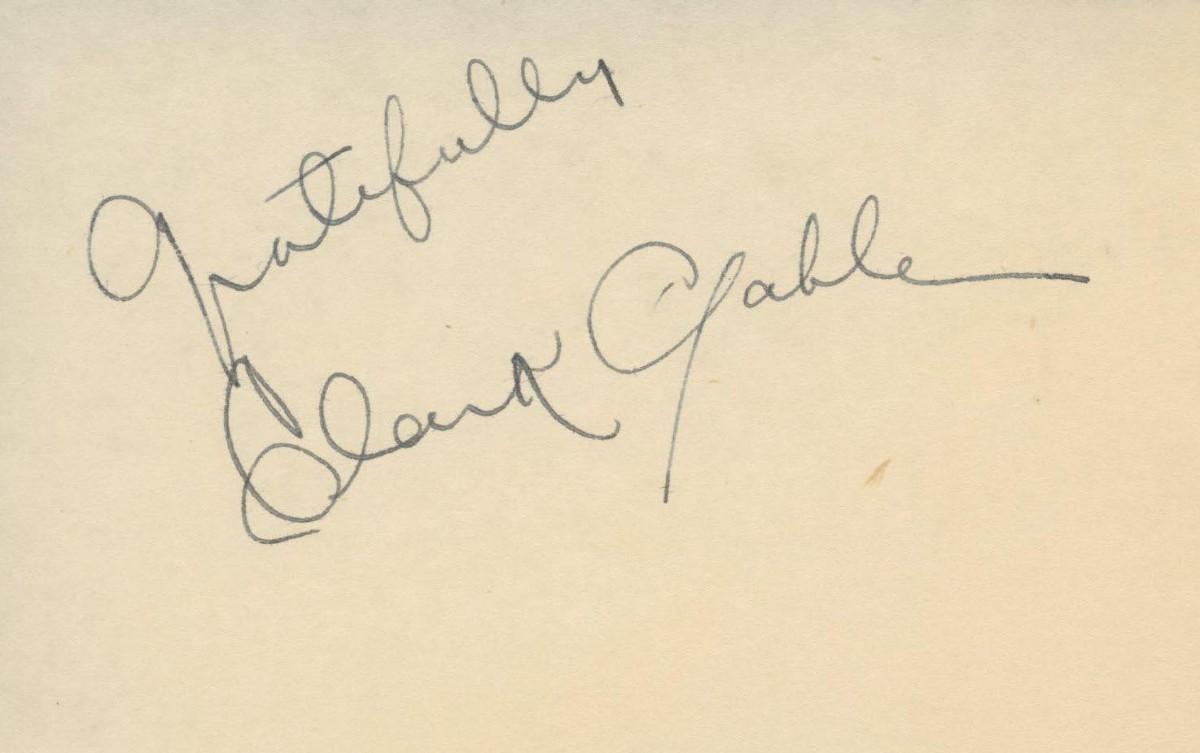 Gratefully
Clark Gable